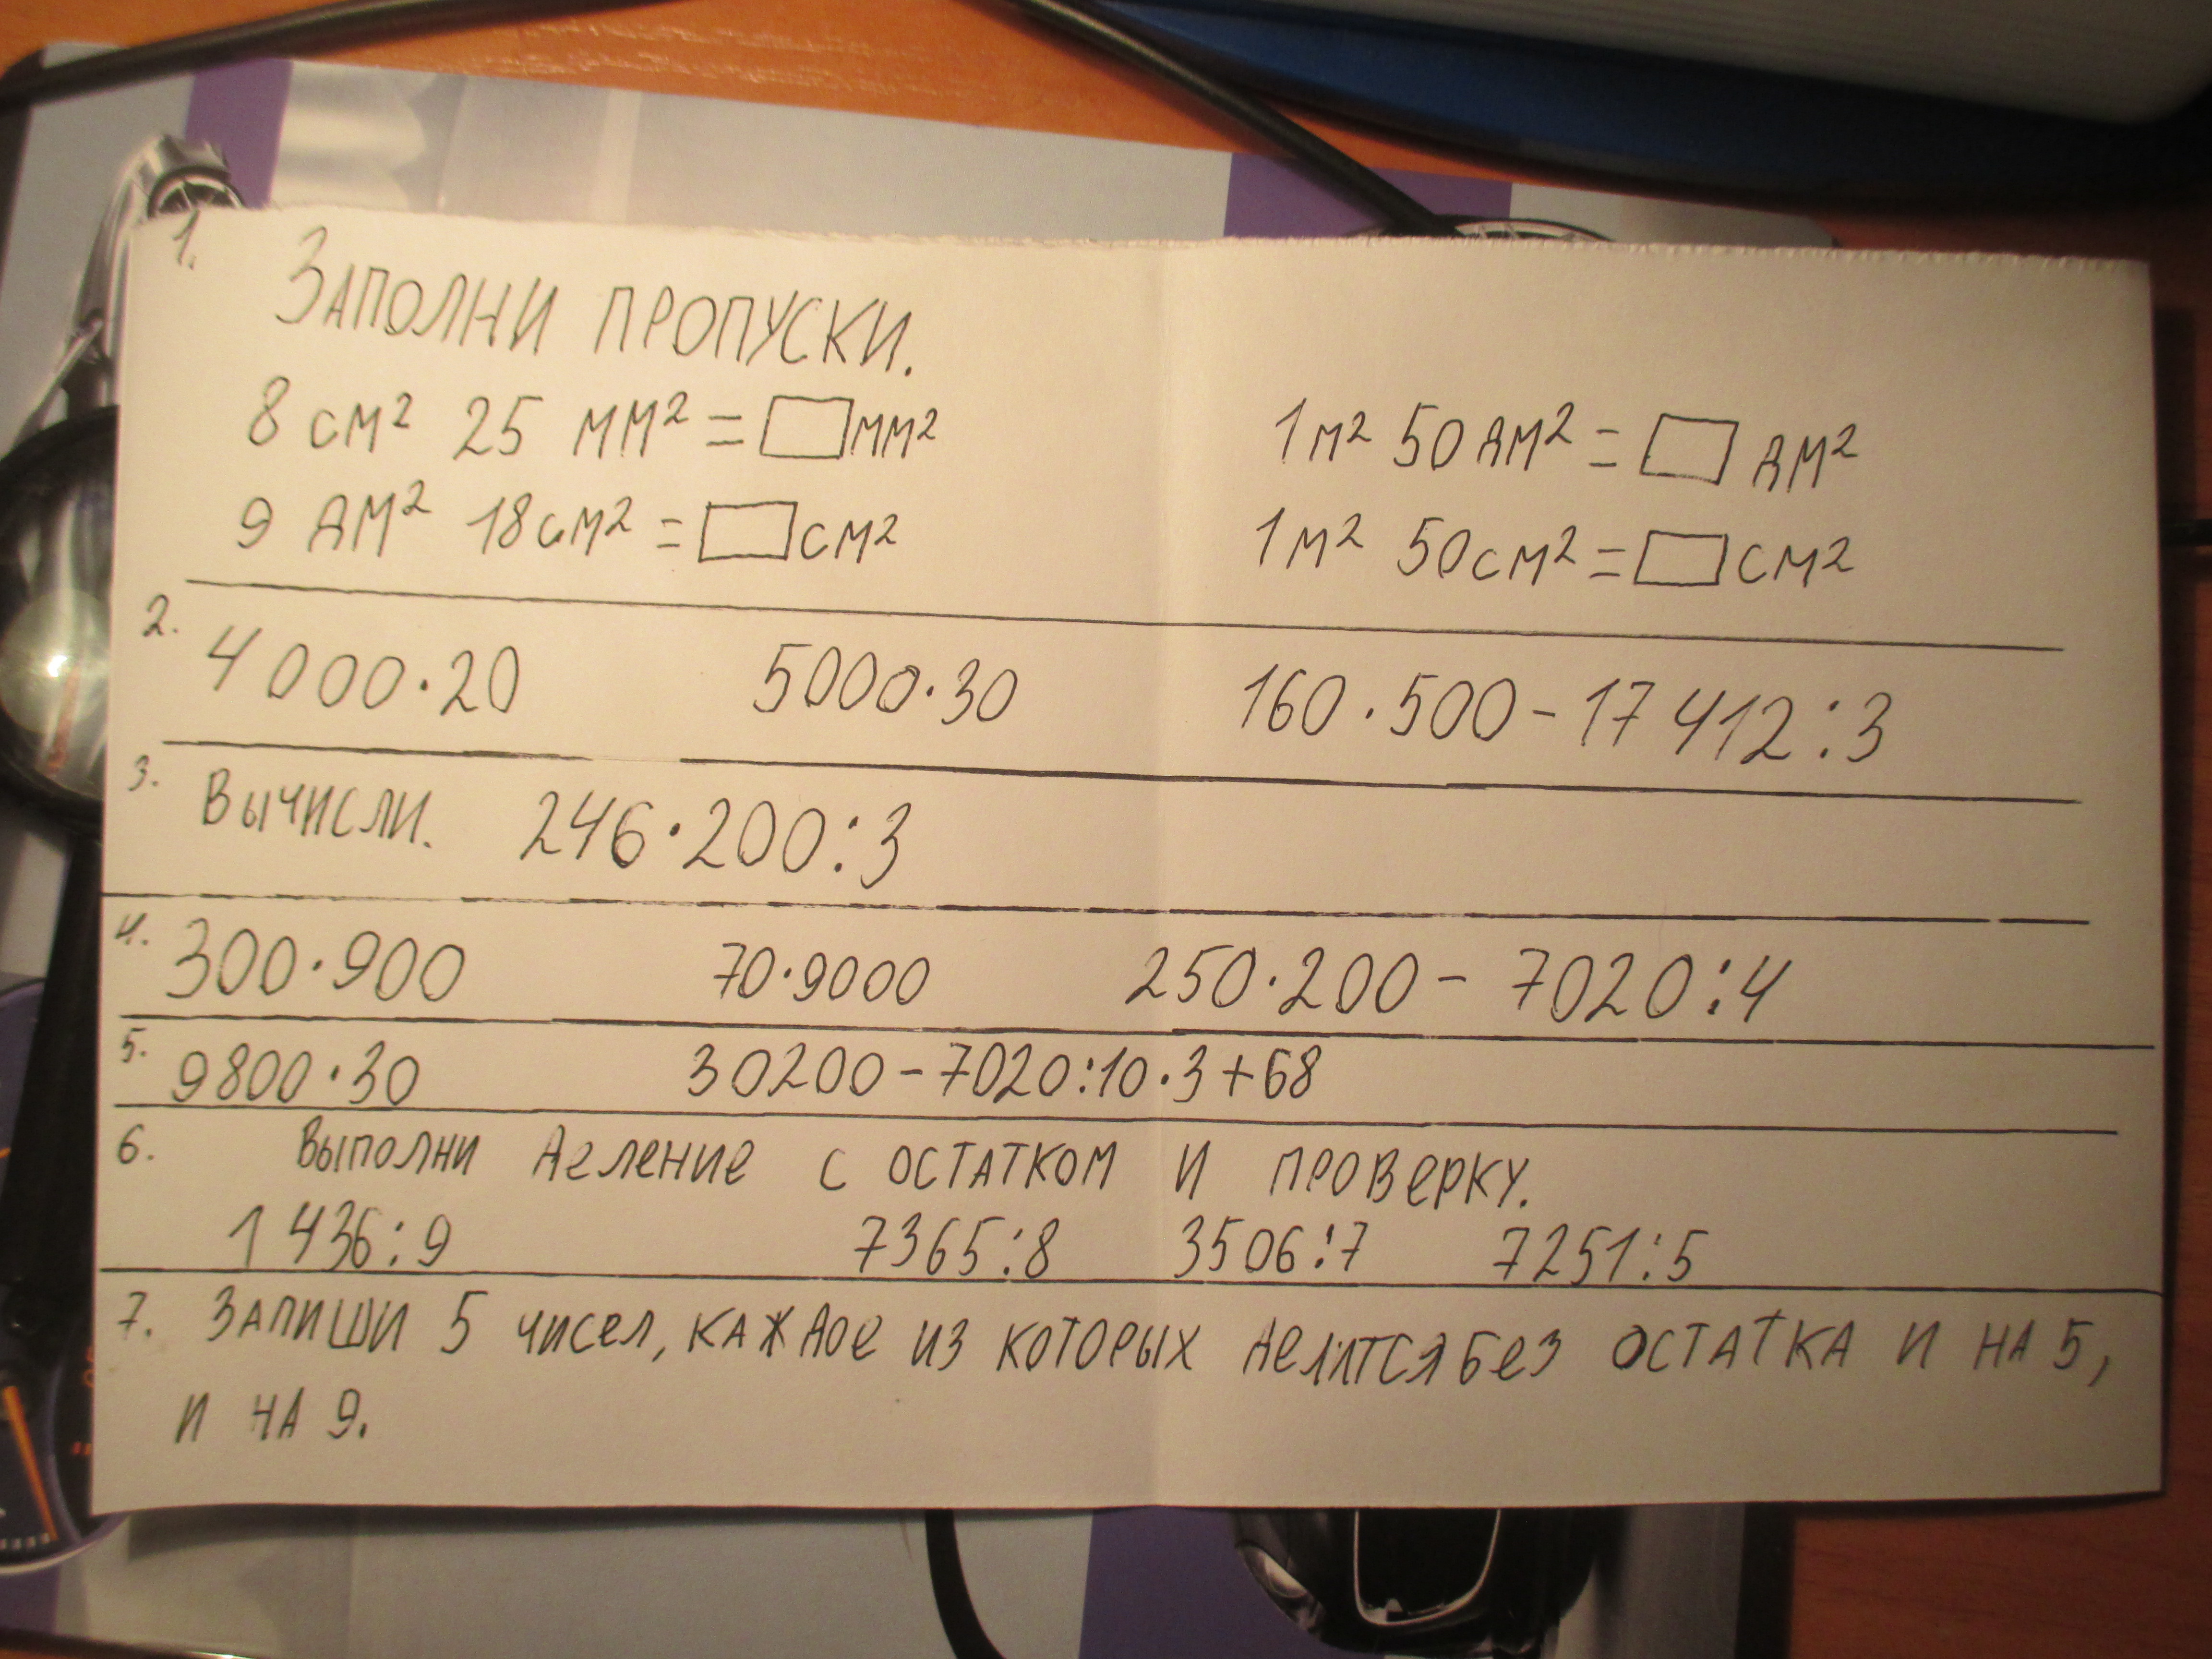 1.
Заполни пропуски.
8 см² 25 мм² = □ мм² 1 м² 50 дм² = □ дм²
9 дм² 18 см² = □ см² 1 м² 50 см² = □ см²
2. 4 000·20 5000·30 160·500-17 412:3
3. Вычисли. 246·200:3
4. 300·900 70·9000 250·200- 7020:4
5. 9800·30 30200-7020:10·3+68
6. Выполни деление с остатком и проверку.
1 436:9 7365:8 3506:7 7251:5
7. Запиши 5 чисел, каждое из которых делится без остатка и на 5,
и на 9.